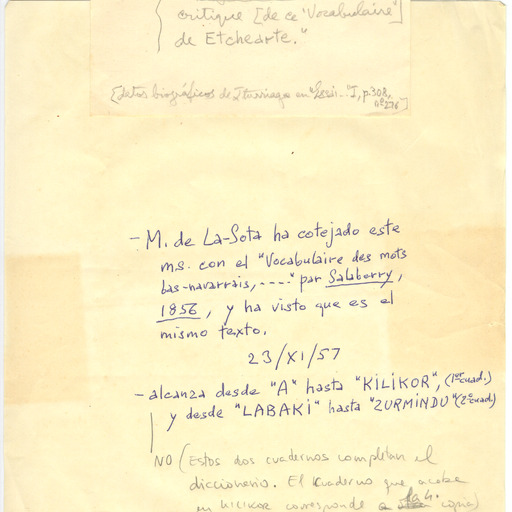 critique [de ce "Vocabulaire"]
de Etchearte."
[datos biográficos de Iturriaga en "Essai..." I, p. 308, nº 276]
- M. de La-Sota ha cotejado este
ms. con el "Vocabulaire des mots
bas-navarrais, ----" par Salaberry,
1856, y ha visto que es el
mismo texto.
23/XI/57
- alcanza desde "A" hasta "KILIKOR", (1er cuad.)
y desde "LABAKI" hasta "ZURMINDU" (2º cuad)
NO (Estos dos cuadernos completan el
diccionario. El cuaderno que acaba
en KILIKOR corresponde a la copia)